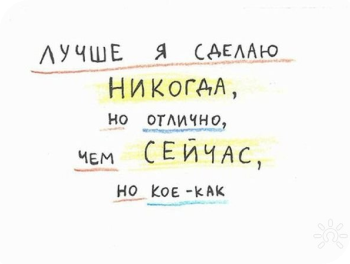 ЛУЧШЕ Я СДЕЛАЮ
НИКОГДА,
НО ОТЛИЧНО,
ЧЕМ СЕЙЧАС,
НО КОЕ-КАК